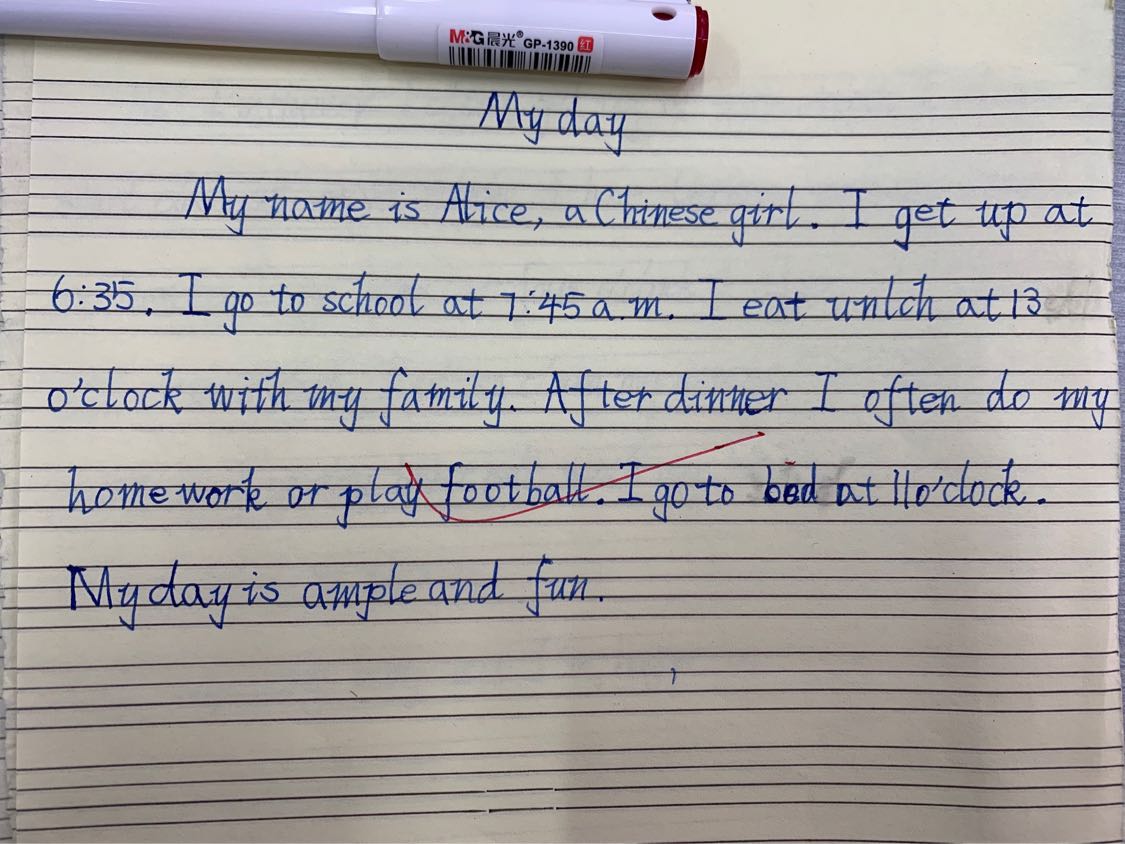 M&G 晨光® GP-1390 红
My day
My name is Alice, a Chinese girl. I get up at
6:35. I go to school at 7:45 a.m. I eat unlch at 13
o'clock with my family. After dinner I often do my
home work or play football. I go to bed at 11 o'clock.
My day is ample and fun.